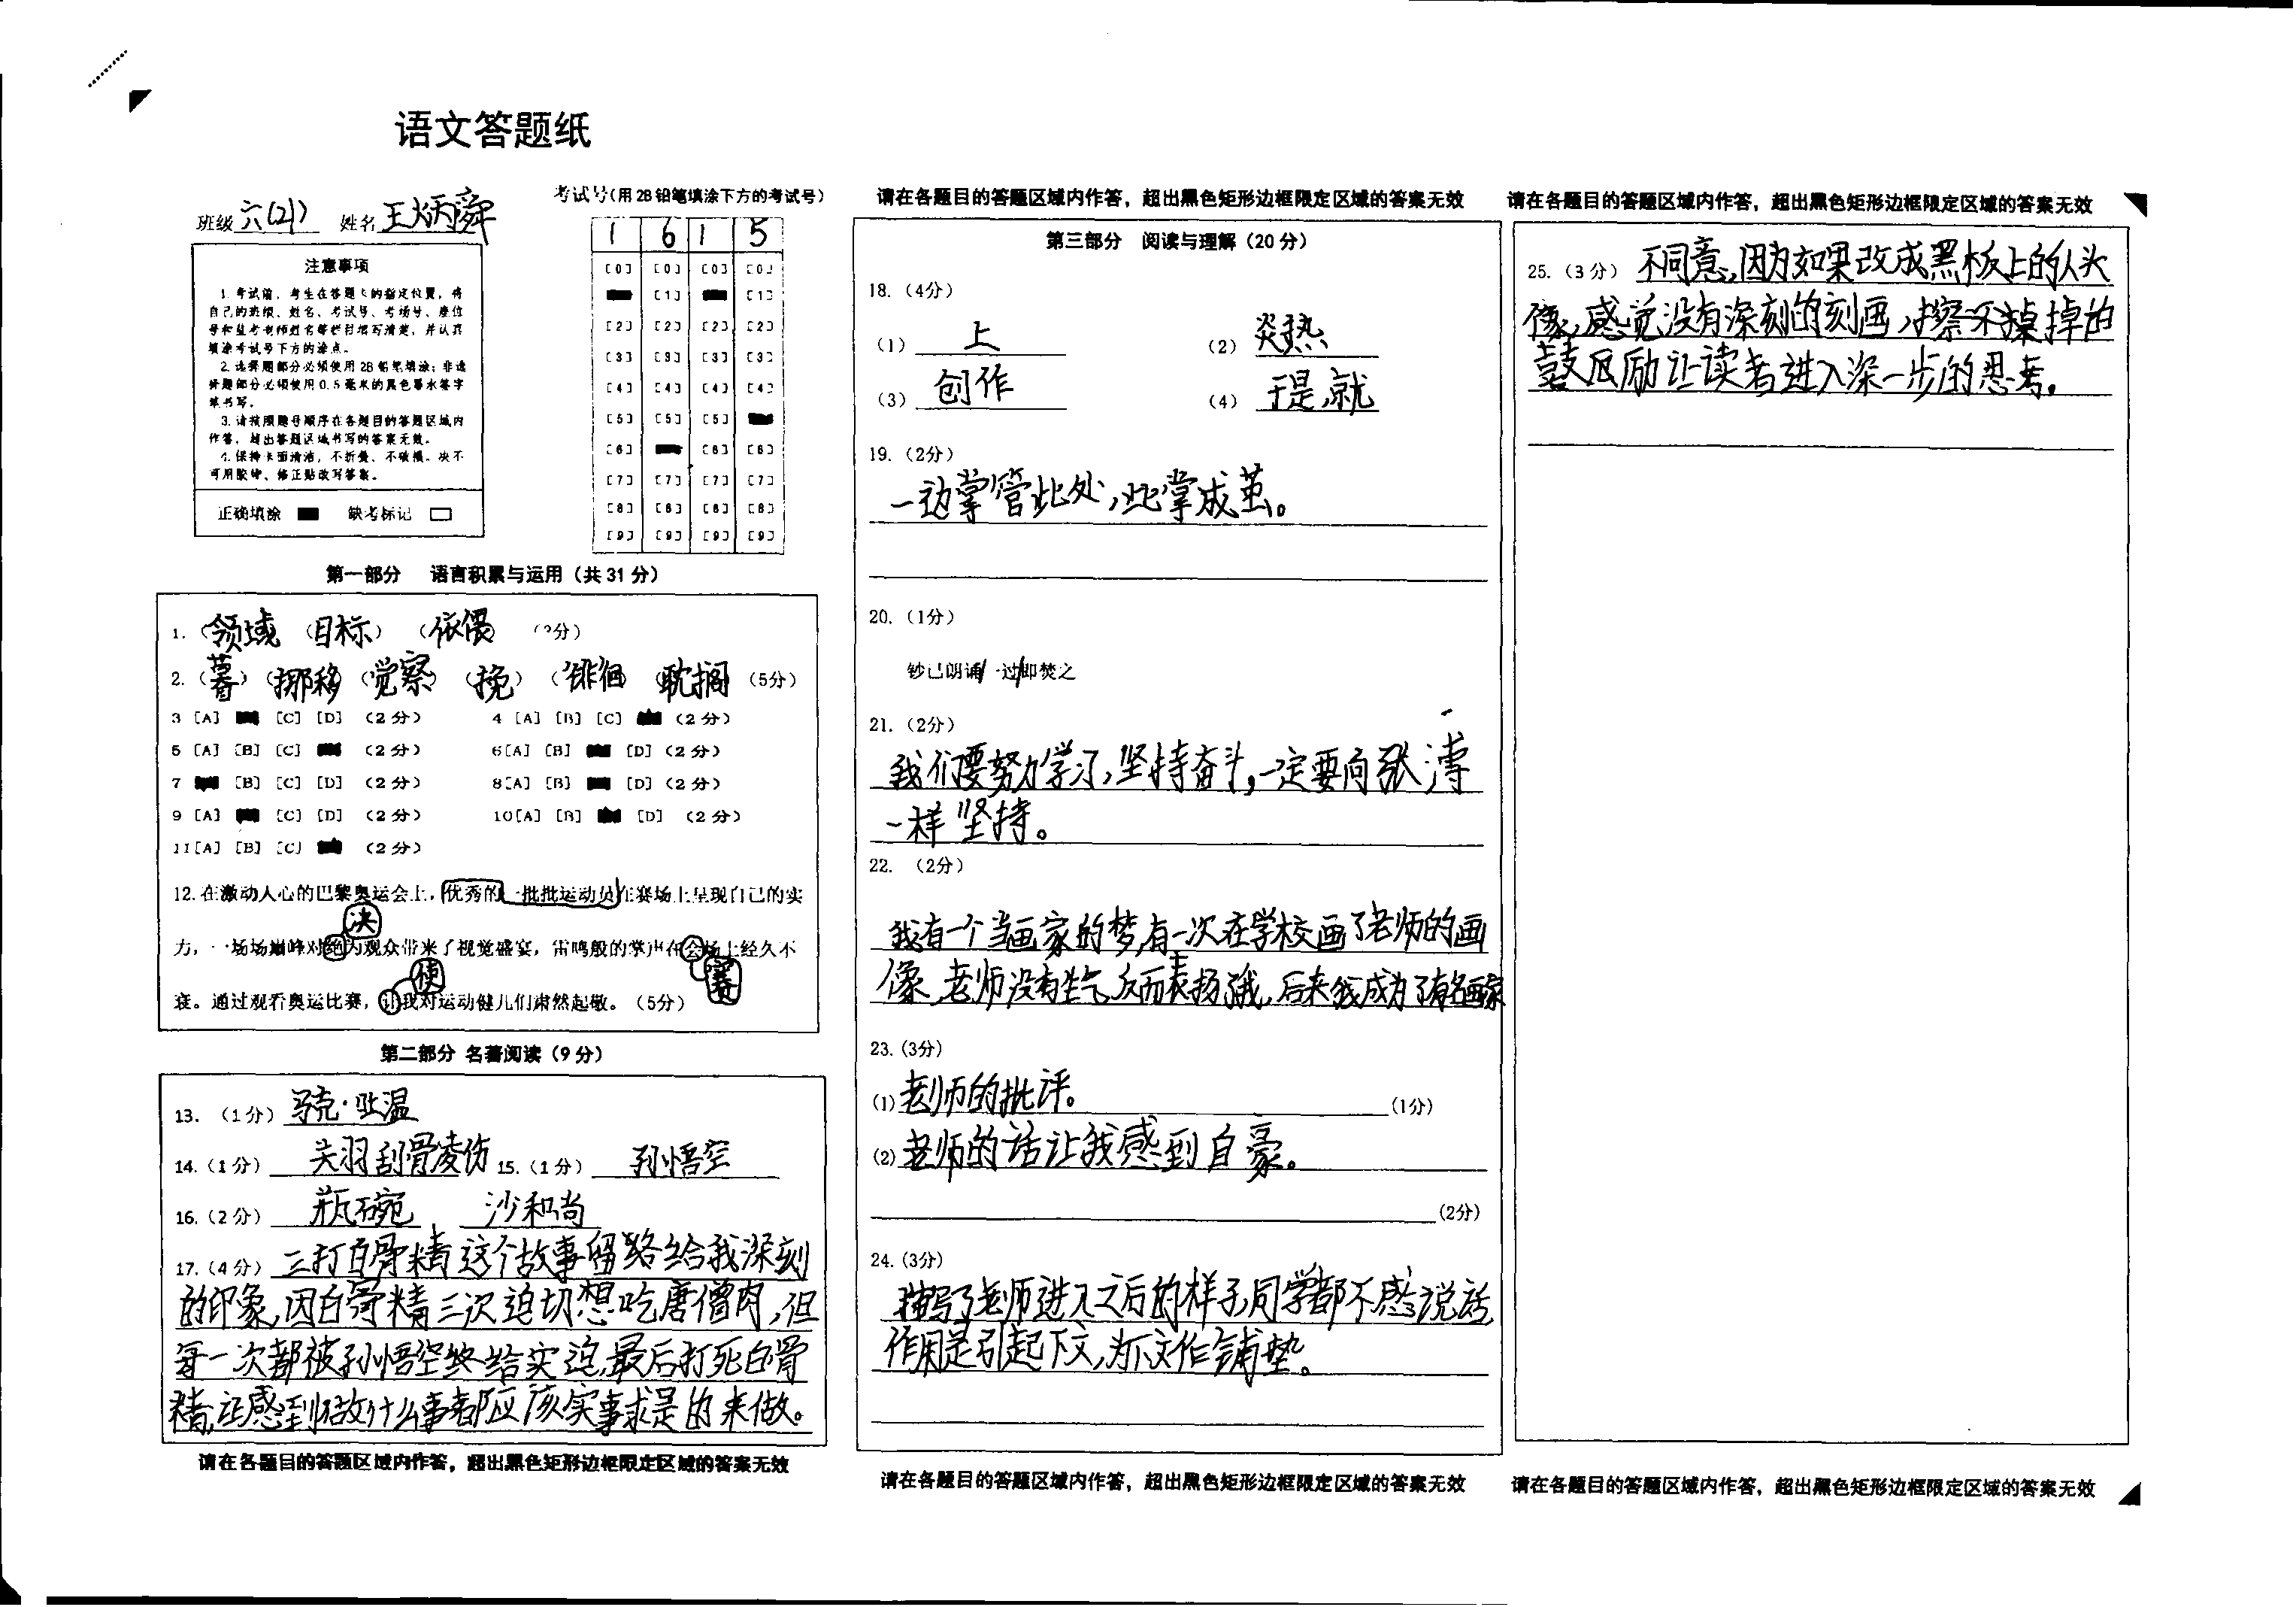 语文答题纸
班级 六(2) 姓名 王炳舜
考试号(用2B铅笔填涂下方的考试号)
1 6 1 5
注意事项
1.考试前，考生在答题卡的指定位置，将
自己的班级、姓名、考试号、考场号、座位
号和监考老师姓名等栏目填写清楚，并认真
填涂考试号下方的涂点。
2.选择题部分必须使用2B铅笔填涂；非选
择题部分必须使用0.5毫米的黑色墨水签字
笔书写。
3.请按照题号顺序在各题目的答题区域内
作答，超出答题区域书写的答案无效。
4.保持卡面清洁，不折叠、不破损。决不
可用胶带、修正贴改写答案。
正确填涂 缺考标记
[0] [0] [0] [0]
[1] [1]
[2] [2] [2] [2]
[3] [3] [3] [3]
[4] [4] [4] [4]
[5] [5] [5]
[6] [6] [6]
[7] [7] [7] [7]
[8] [8] [8] [8]
[9] [9] [9] [9]
第一部分 语言积累与运用（共31分）
1.（领域）（目标）（依偎）（3分）
2.（暮）（挪移）（觉察）（挽）（徘徊）（耽搁）（5分）
3 [A] [C] [D] （2分） 4 [A] [B] [C] （2分）
5 [A] [B] [C] （2分） 6[A] [B] [D]（2分）
7 [B] [C] [D] （2分） 8[A] [B] [D]（2分）
9 [A] [C] [D] （2分） 10[A] [B] [D] （2分）
11[A] [B] [C] （2分）
12.在激动人心的巴黎奥运会上，优秀的一批批运动员在赛场上呈现自己的实
决
力，一场场巅峰对绝为观众带来了视觉盛宴，雷鸣般的掌声在会场上经久不
使 赛
衰。通过观看奥运比赛，让我对运动健儿们肃然起敬。（5分）
第二部分 名著阅读（9分）
13.（1分）马克·吐温
14.（1分）关羽刮骨凌伤 15.（1分）孙悟空
16.（2分） 瓶碗 沙和尚
17.（4分）三打白骨精这个故事留络给我深刻
的印象,因白骨精三次迫切想吃唐僧肉,但
每一次都被孙悟空终给实迫,最后打死白骨
精,让感到做什么事都应该实事求是的来做。
请在各题目的答题区域内作答，超出黑色矩形边框限定区域的答案无效
请在各题目的答题区域内作答，超出黑色矩形边框限定区域的答案无效
第三部分 阅读与理解（20分）
18.（4分）
（1） 上 （2） 炎热
（3） 创作 （4） 于是,就
19.（2分）
一边掌管此处,此掌成茧。
20.（1分）
钞已朗诵/一过/即焚之
21.（2分）
我们要努力学习,坚持奋斗,一定要向张溥
一样坚持。
22.（2分）
我有一个当画家的梦,有一次在学校画了老师的画
像,老师没有生气反而表扬了我,后来我成为了有名画家
23.(3分)
(1)老师的批评。(1分)
(2)老师的话让我感到自豪。
(2分)
24.(3分)
描写了老师进入之后的样子,同学都不感说话,
作用是引起下文,为下文作铺垫。
请在各题目的答题区域内作答，超出黑色矩形边框限定区域的答案无效
请在各题目的答题区域内作答，超出黑色矩形边框限定区域的答案无效
25.（3分） 不同意,因为如果改成黑板上的人头
像,感觉没有深刻的刻画,擦不掉的
鼓励让读者进入深一步的思考。
请在各题目的答题区域内作答，超出黑色矩形边框限定区域的答案无效